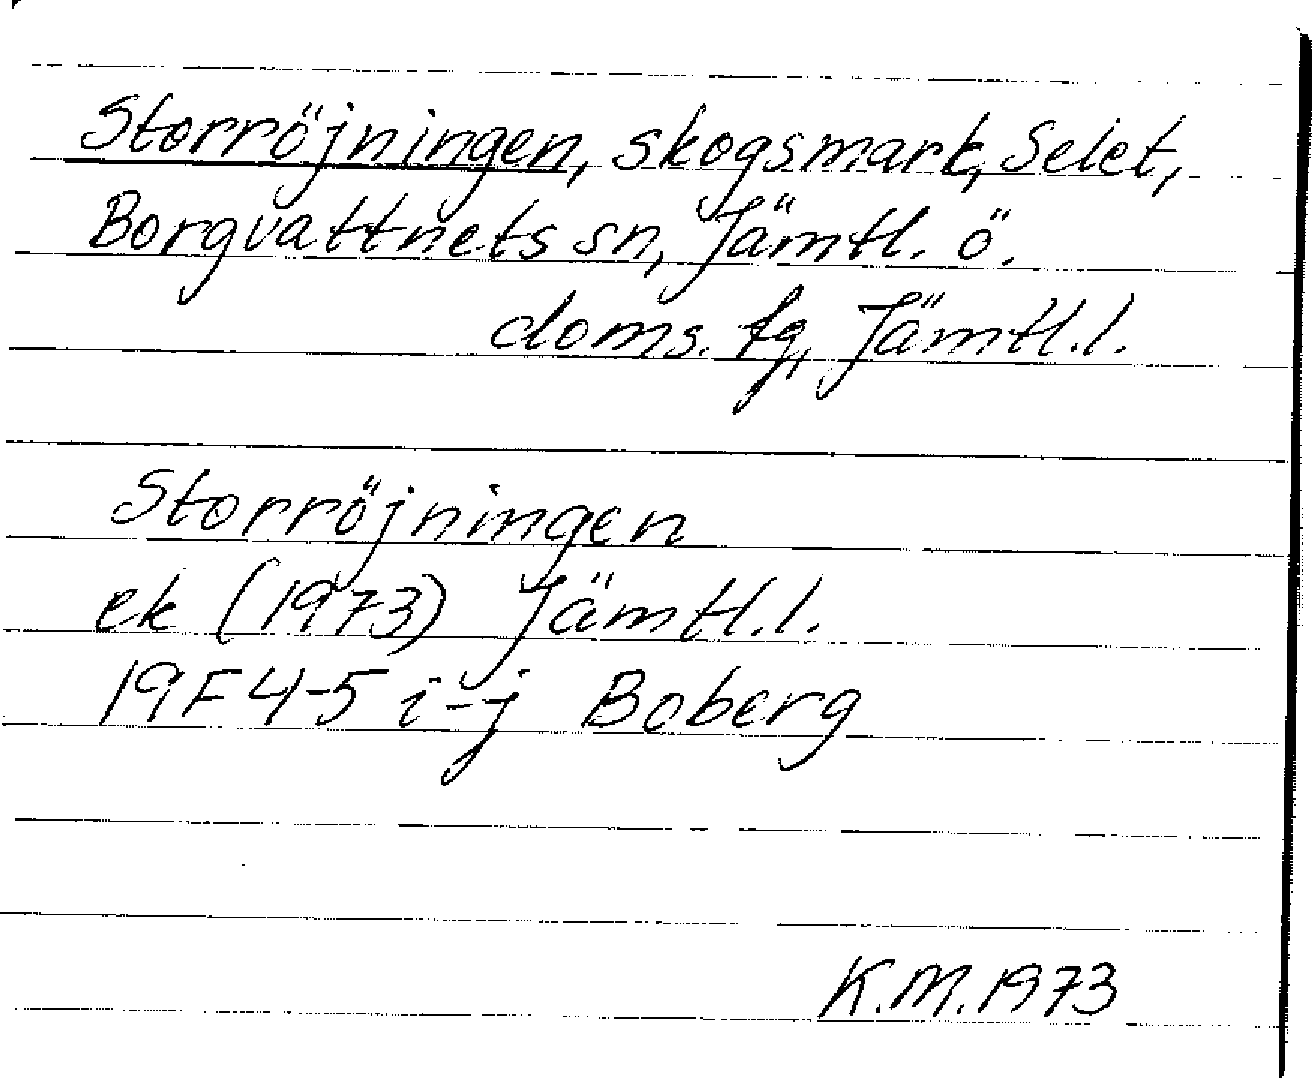 Storröjningen, skogsmark, Selet,
Borgvattnets sn, Jämtl. ö.
doms. fg, Jämtl.l.
Storröjningen
ek (1973) Jämtl.l.
19F 4-5 i-j Boberg
K.M. 1973